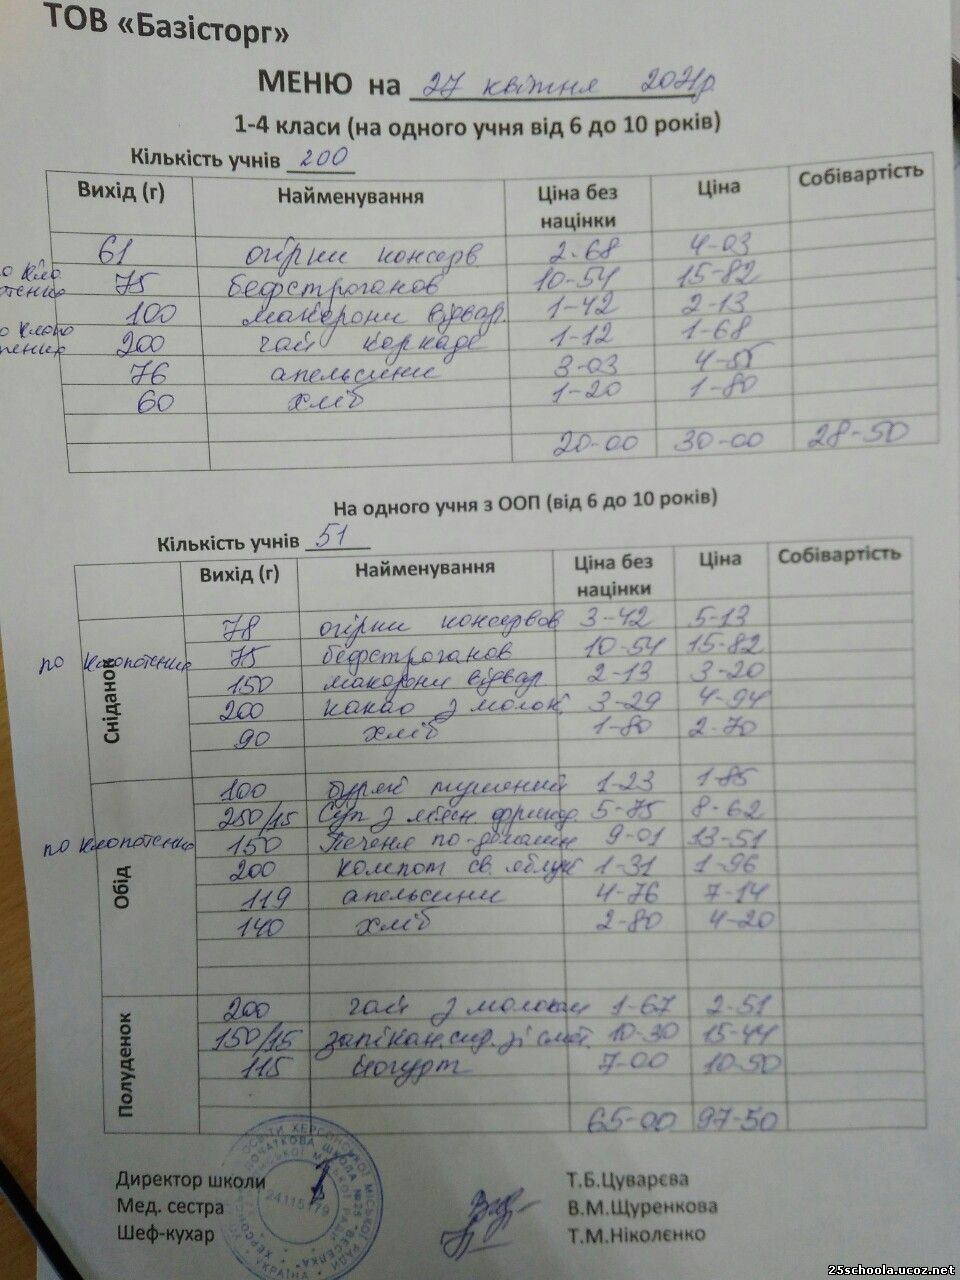 ТОВ «Базісторг»
МЕНЮ на 27 квітня 2021р
1-4 класи (на одного учня від 6 до 10 років)
Кількість учнів 200
Вихід (г) Найменування Ціна без націнки Ціна Собівартість
61 огірки консерв 2-68 4-03
75 бефстроганов 10-54 15-82
100 макарони відвар. 1-42 2-13
200 чай каркаде 1-12 1-68
76 апельсини 3-03 4-55
60 хліб 1-20 1-80
20-00 30-00 28-50
На одного учня з ООП (від 6 до 10 років)
Кількість учнів 51
Вихід (г) Найменування Ціна без націнки Ціна Собівартість
Сніданок
78 огірки консервов 3-42 5-13
по Клопотенко 75 бефстроганов 10-54 15-82
150 макарони відвар 2-13 3-20
200 какао з молок. 3-29 4-94
90 хліб 1-80 2-70
Обід
100 буряк тушений 1-23 1-85
250/15 Суп з мясн фрикад 5-75 8-62
по Клопотенко 150 Печеня по-домашн 9-01 13-51
200 компот св. яблук 1-31 1-96
119 апельсини 4-76 7-14
140 хліб 2-80 4-20
Полуденок
200 чай з молоком 1-67 2-51
150/15 запікан. сир. зі смет. 10-30 15-44
115 йогурт 7-00 10-50
65-00 97-50
Директор школи Т.Б.Цуварєва
Мед. сестра В.М.Щуренкова
Шеф-кухар Т.М.Ніколєнко
24115179
25schoola.ucoz.net